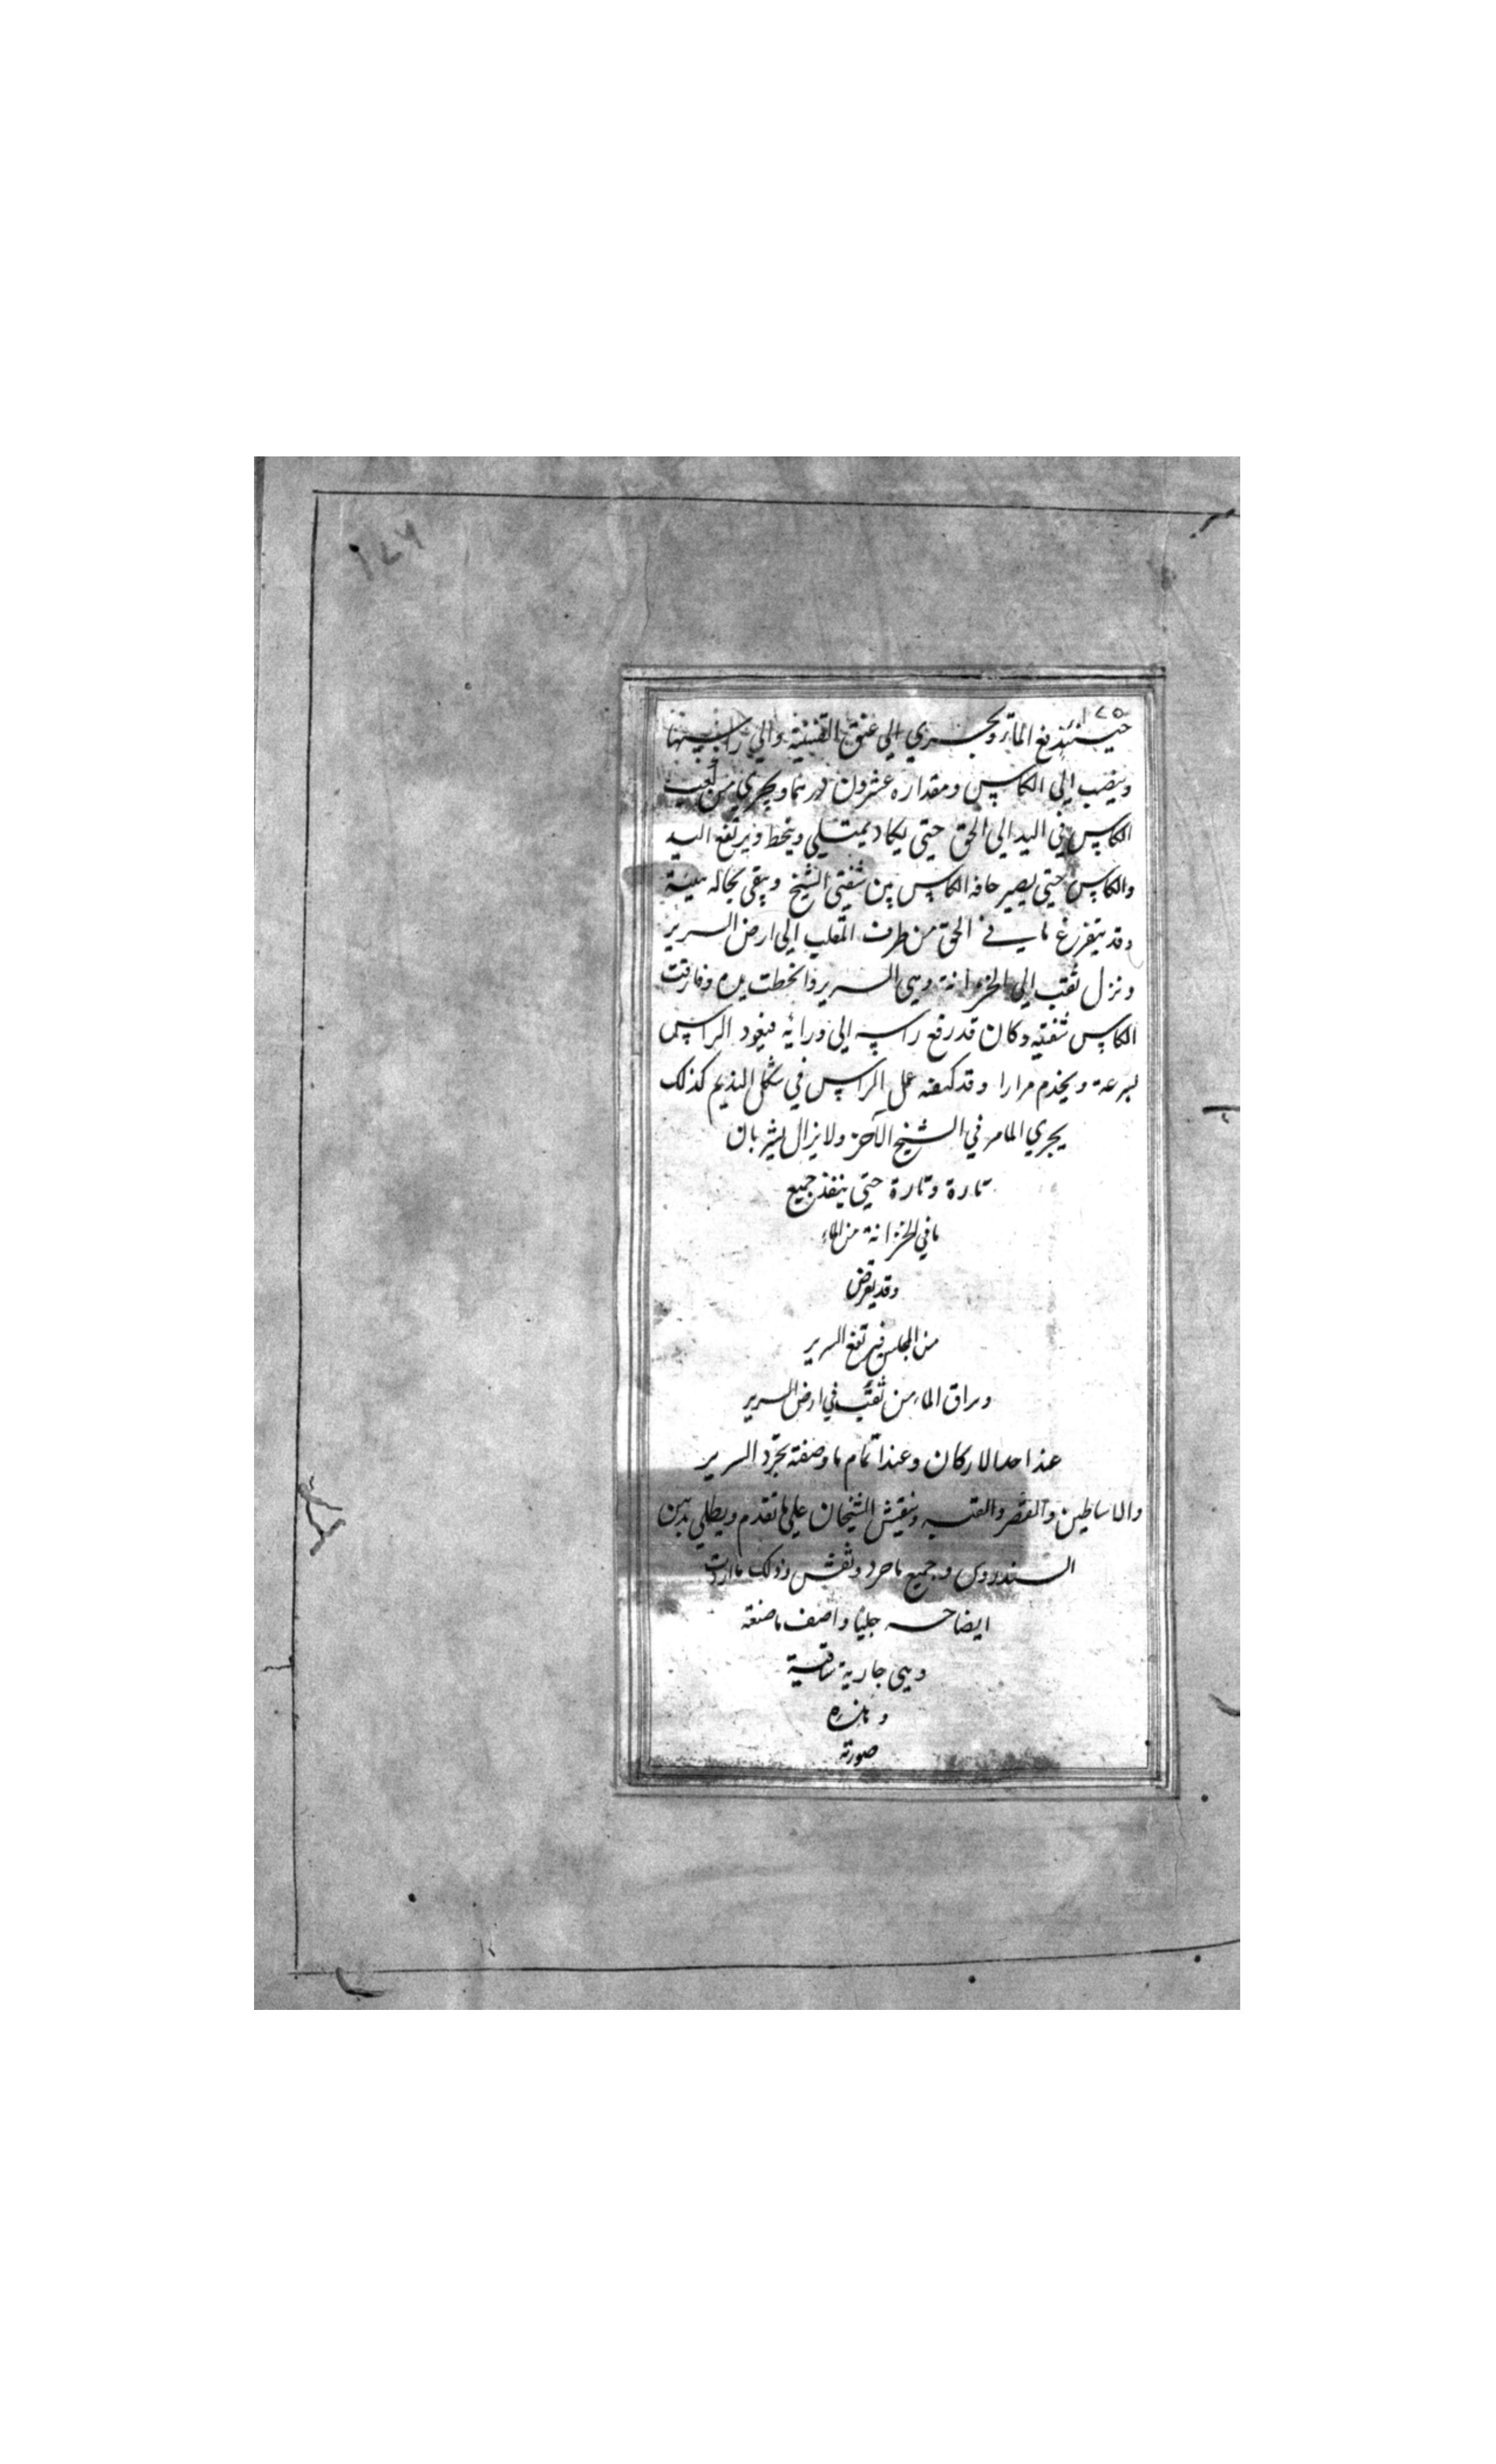 ١٢٦
١٢٥
حينئذ يندفع الماء ويجري الي عنق القنينة والي راسها
وينصب الي الكاس ومقداره عشرون درهما ويجري من ثقب
الكاس في اليد الي الحق حتي يكاد يمتلي وينحط ويرتفع اليد
والكاس حتي يصير حافه الكاس بين شفتي الشيخ ويبقي بحاله هنيئة
وقد يتفرغ ما في الحق من طرف الثعلب الي ارض السرير
ونزل ثقب الي الخزانة وهي السرير وانحطت يده وفارقت
الكاس شفتيه وكان قد رفع راسه الي ورائه فيعود الراس
بسرعة ويخدم مرارا وقد كيفه عمل الراس في شكل النديم كذلك
يجري الما من في الشيخ الآخر ولا يزال يشربان
تارة وتارة حتي ينفذ جميع
ما في الخزانة من الماء
وقد يعرض
من المجلس فيرتفع السرير
ويراق الماء من ثقب في ارض السرير
عند احد الاركان وعند اتمام ما وصفته يجرد السرير
والاساطين والقصر والقبه وينقش الشيخان علي ما تقدم ويطلي بدهن
السندروس وجميع ما جرد ونقش وذلك ما اردت
ايضاحه جليا واصف ما صنعته
وهي جارية ساقية
وهذه
صورته